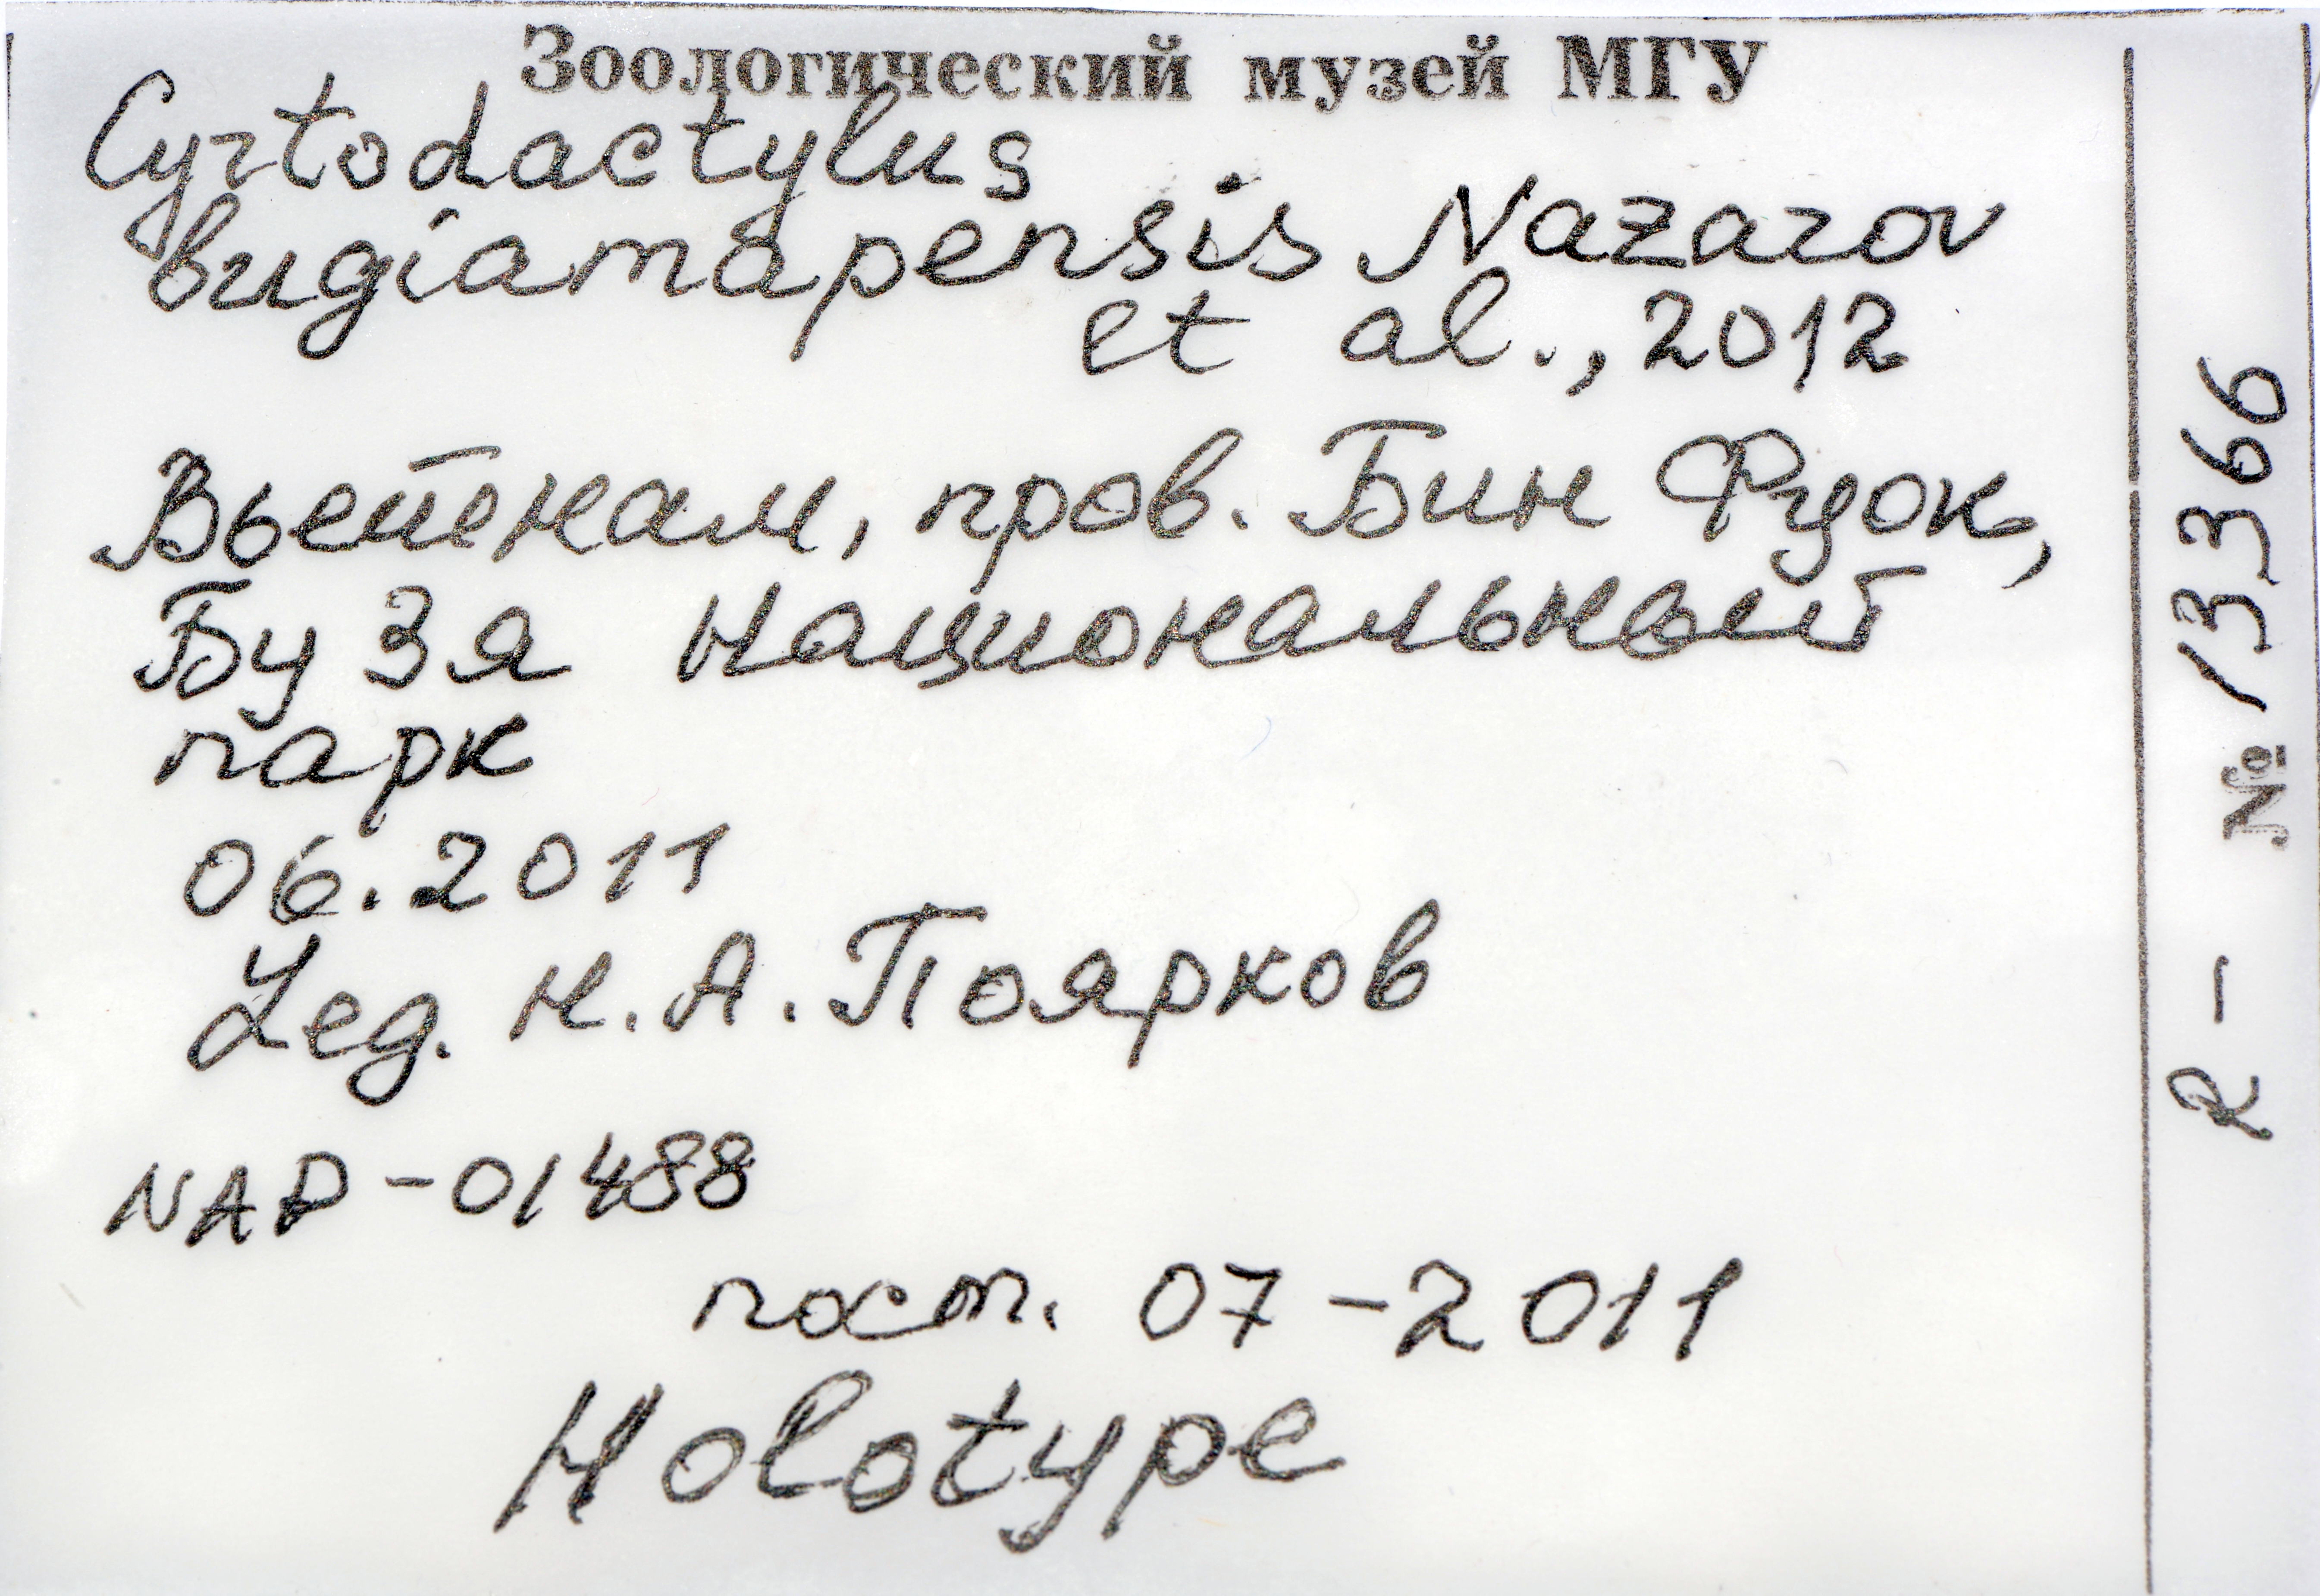 Зоологический музей МГУ
Cyrtodactylus
bugiamapensis Nazarov
et al., 2012
Вьетнам, пров. Бин Фуок,
Бу Зя Национальный
парк
06.2011
Leg. Н.А. Поярков
NAP-01488
пост. 07-2011
Holotype
R- № 13366